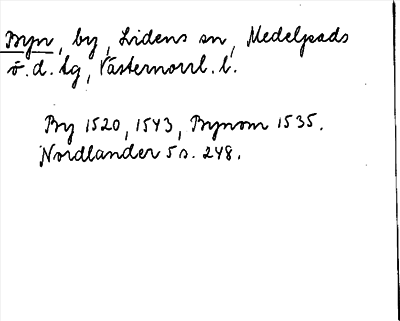 Byn, by, Lidens sn, Medelpads
ö. d. tg, Västernorrl. l.
By 1520, 1543, Bynom 1535.
Nordlander 5 s. 248.